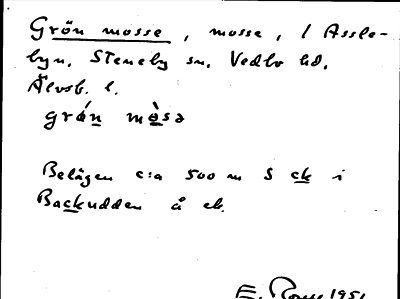 Grön mosse, mosse, i Assle-
byn, Steneby sn, Vedbo hd,
Älvsb. l.
grö́n mòsə
Belägen c:a 500 m S ck i
Backudden å eb.
E. 1951